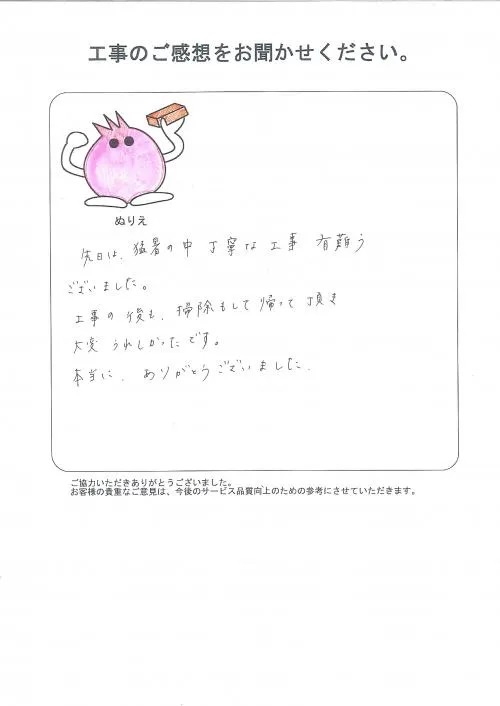 工事のご感想をお聞かせください。
ぬりえ
先日は、猛暑の中 丁寧な工事 有難う
ございました。
工事の後も、掃除もして帰って頂き
大変 うれしかったです。
本当に、ありがとうございました。
ご協力いただきありがとうございました。
お客様の貴重なご意見は、今後のサービス品質向上のための参考にさせていただきます。